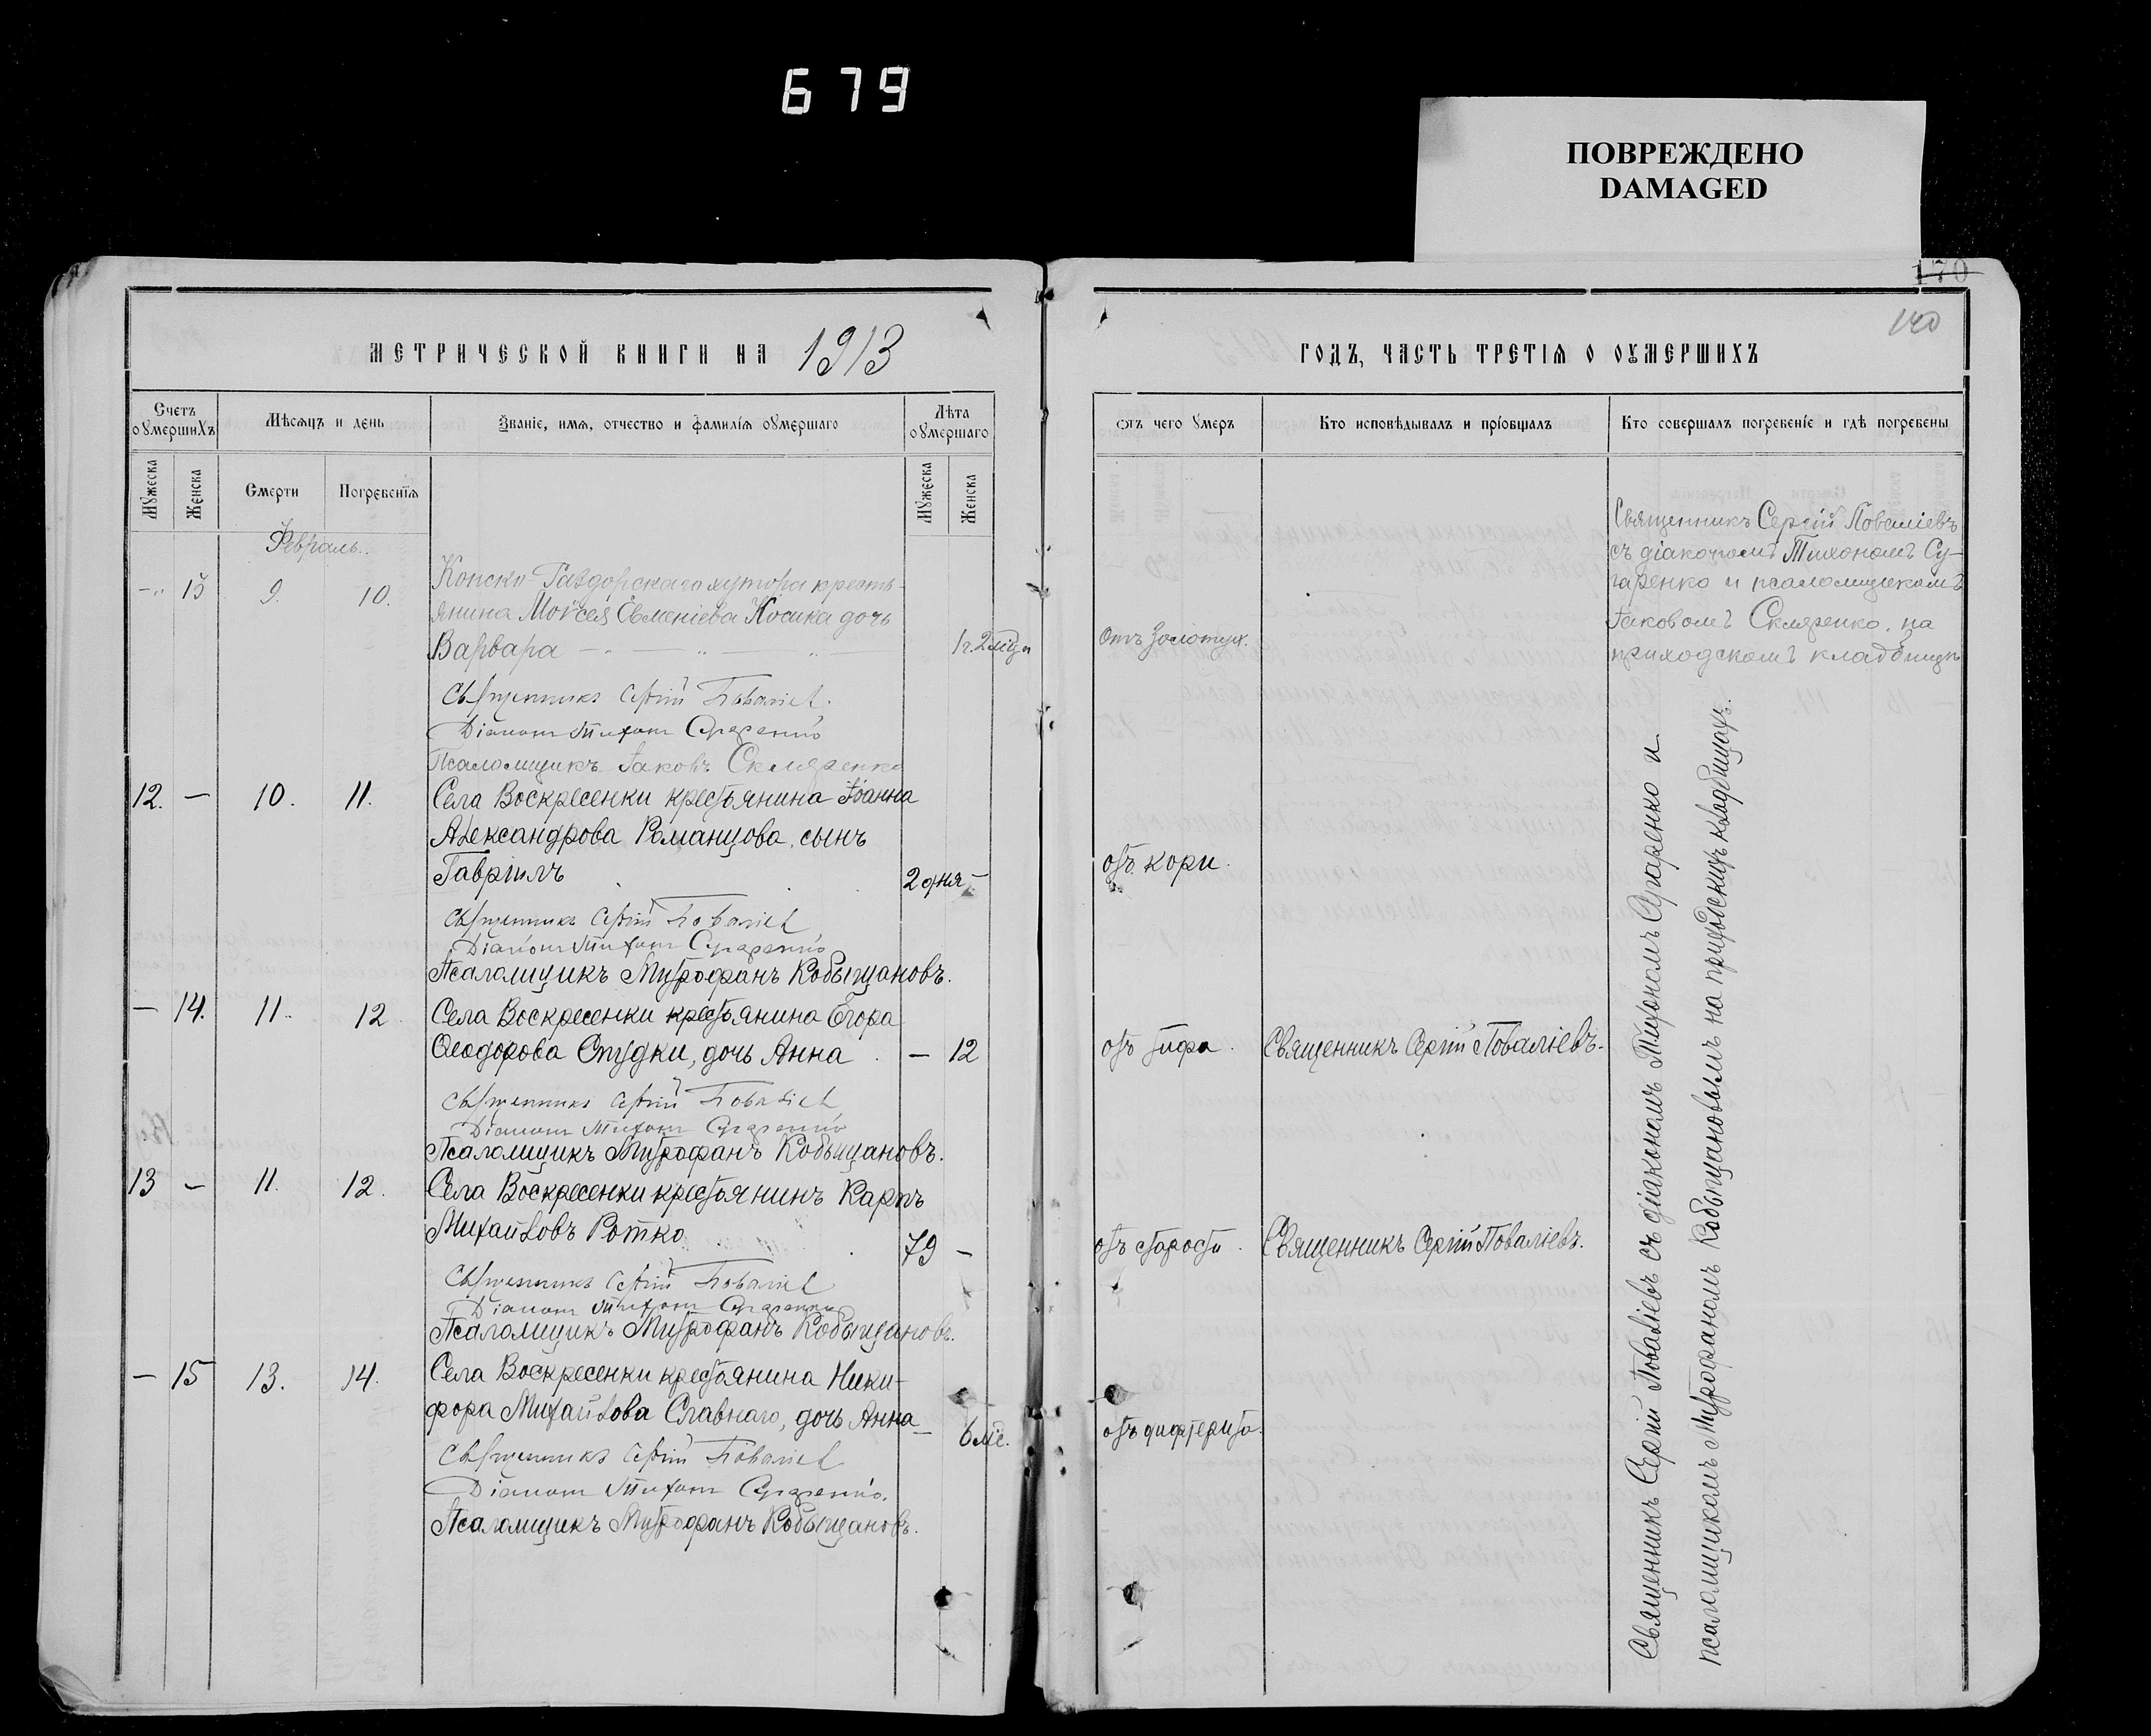 679
ПОВРЕЖДЕНО
DAMAGED
170
140
МЕТРИЧЕСКОЙ КНИГИ НА 1913
ГОДЪ, ЧАСТЬ ТРЕТІЯ О ОУМЕРШИХЪ
Счетъ оумершихъ
Мѣсяцъ и день
Званіе, имя, отчество и фамилія оумершаго
Лѣта оумершаго
Отъ чего умеръ
Кто исповѣдывалъ и пріобщалъ
Кто совершалъ погребеніе и гдѣ погребены
Мужеска
Женска
Смерти
Погребенія
Мужеска
Женска
Февраль.
13 9. 10.
Конско-Раздорскаго хутора кресть-
янина Моѵсея Евменіева Косика дочь
Варвара 1г. 2 мѣц
Отъ Золотух.
Священникъ Сергій Поваліевъ
съ діакономъ Тихономъ Су-
гаренко и псаломщикомъ
Іаковомъ Скляренко, на
приходскомъ кладбищѣ
Священникъ Сергій Поваліевъ
Діаконъ Тихонъ Сугаренко
Псаломщикъ Іаковъ Скляренко
12. — 10. 11. Села Воскресенки крестьянина Іоанна
Александрова Романцова, сынъ
Гавріилъ 2 дня —
отъ кори.
Священникъ Сергій Поваліевъ
Діаконъ Тихонъ Сугаренко
Псаломщикъ Митрофанъ Кобыщановъ.
— 14. 11. 12. Села Воскресенки крестьянина Егора
Ѳеодорова Спудки, дочь Анна — 12
отъ тифа. Священникъ Сергій Поваліевъ.
Священникъ Сергій Поваліевъ
Діаконъ Тихонъ Сугаренко
Псаломщикъ Митрофанъ Кобыщановъ.
13 — 11. 12. Села Воскресенки крестьянинъ Карпъ
Михайловъ Ротко 79 —
отъ старости. Священникъ Сергій Поваліевъ.
Священникъ Сергій Поваліевъ
Діаконъ Тихонъ Сугаренко
Псаломщикъ Митрофанъ Кобыщановъ.
— 15 13. 14. Села Воскресенки крестьянина Ники-
фора Михайлова Славнаго, дочь Анна — 6 мѣс.
отъ дифтерита.
Священникъ Сергій Поваліевъ
Діаконъ Тихонъ Сугаренко.
Псаломщикъ Митрофанъ Кобыщановъ.
Священникъ Сергій Поваліевъ съ діакономъ Тихономъ Сугаренко и
псаломщикомъ Митрофаномъ Кобыщановымъ на приходскихъ кладбищахъ.